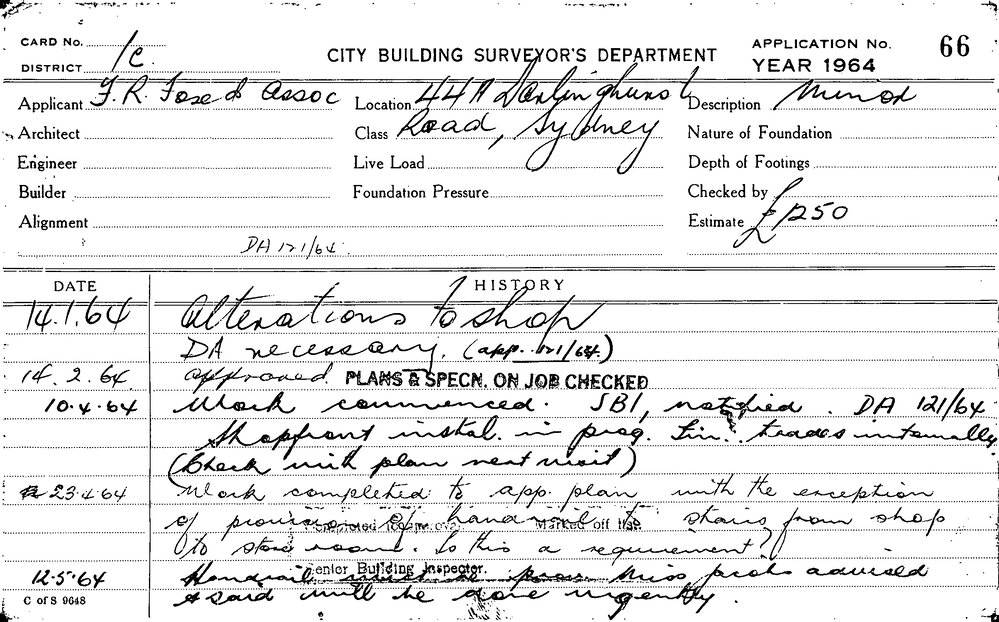 CARD No.
DISTRICT 1C
CITY BUILDING SURVEYOR'S DEPARTMENT
APPLICATION No. 66
YEAR 1964
Applicant F.R. Fose & Assoc
Location 44A Darlinghurst
Description Minor
Architect
Class Road, Sydney
Nature of Foundation
Engineer
Live Load
Depth of Footings
Builder
Foundation Pressure
Checked by
Alignment
Estimate £1250
DA 121/64.
DATE
HISTORY
14.1.64 Alterations to shop
DA necessary. (app. 121/64.)
14.2.64 approved. PLANS & SPECN. ON JOB CHECKED
10.4.64 Work commenced. SBI, notified. DA 121/64.
Shopfront instal. in prog. Fin. trades internally.
(Check with plan next visit)
23.4.64 Work completed to app. plan with the exception
of provision of handrail to stairs from shop
Marked off Map
to store room. Is this a requirement?
Senior Building Inspector.
12.5.64 Handrail must be prov. Miss advised
& said will be done urgently.
C of S 9648